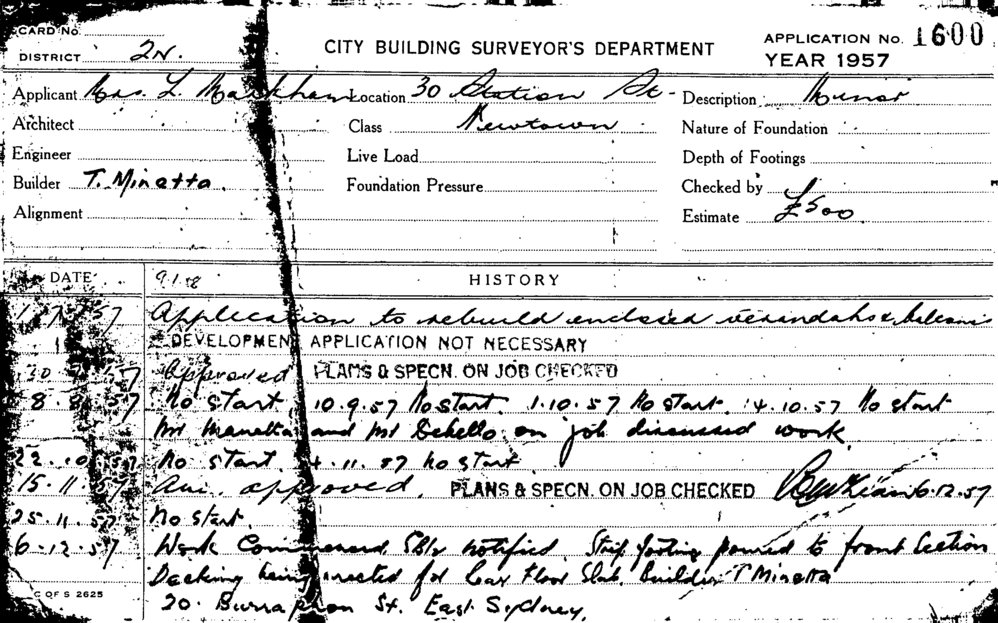 CARD No.
DISTRICT 2N.
CITY BUILDING SURVEYOR'S DEPARTMENT
APPLICATION No. 1600
YEAR 1957
Applicant Mrs. L. Markham Location 30 Station St. Description Minor
Architect Class Newtown Nature of Foundation
Engineer Live Load Depth of Footings
Builder T. Minetta. Foundation Pressure Checked by
Alignment Estimate £500
DATE HISTORY
57 Application to rebuild enclosed verandahs &
DEVELOPMENT APPLICATION NOT NECESSARY
57 Approved PLANS & SPECN. ON JOB CHECKED
8. 57 No start 10.9.57 No start. 1.10.57 No start. 14.10.57 No start
Mr and Mr on job discussed work
22.10.57 No start. 4.11.57 No start
15.11.57 Am. approved. PLANS & SPECN. ON JOB CHECKED 6.12.57
25.11.57 No start.
6.12.57 Work Commenced. notified. Strip footing poured to front Section
Decking being erected for Floor Slab. Builder T Minetta
20. St. East Sydney.
C OF S 2625